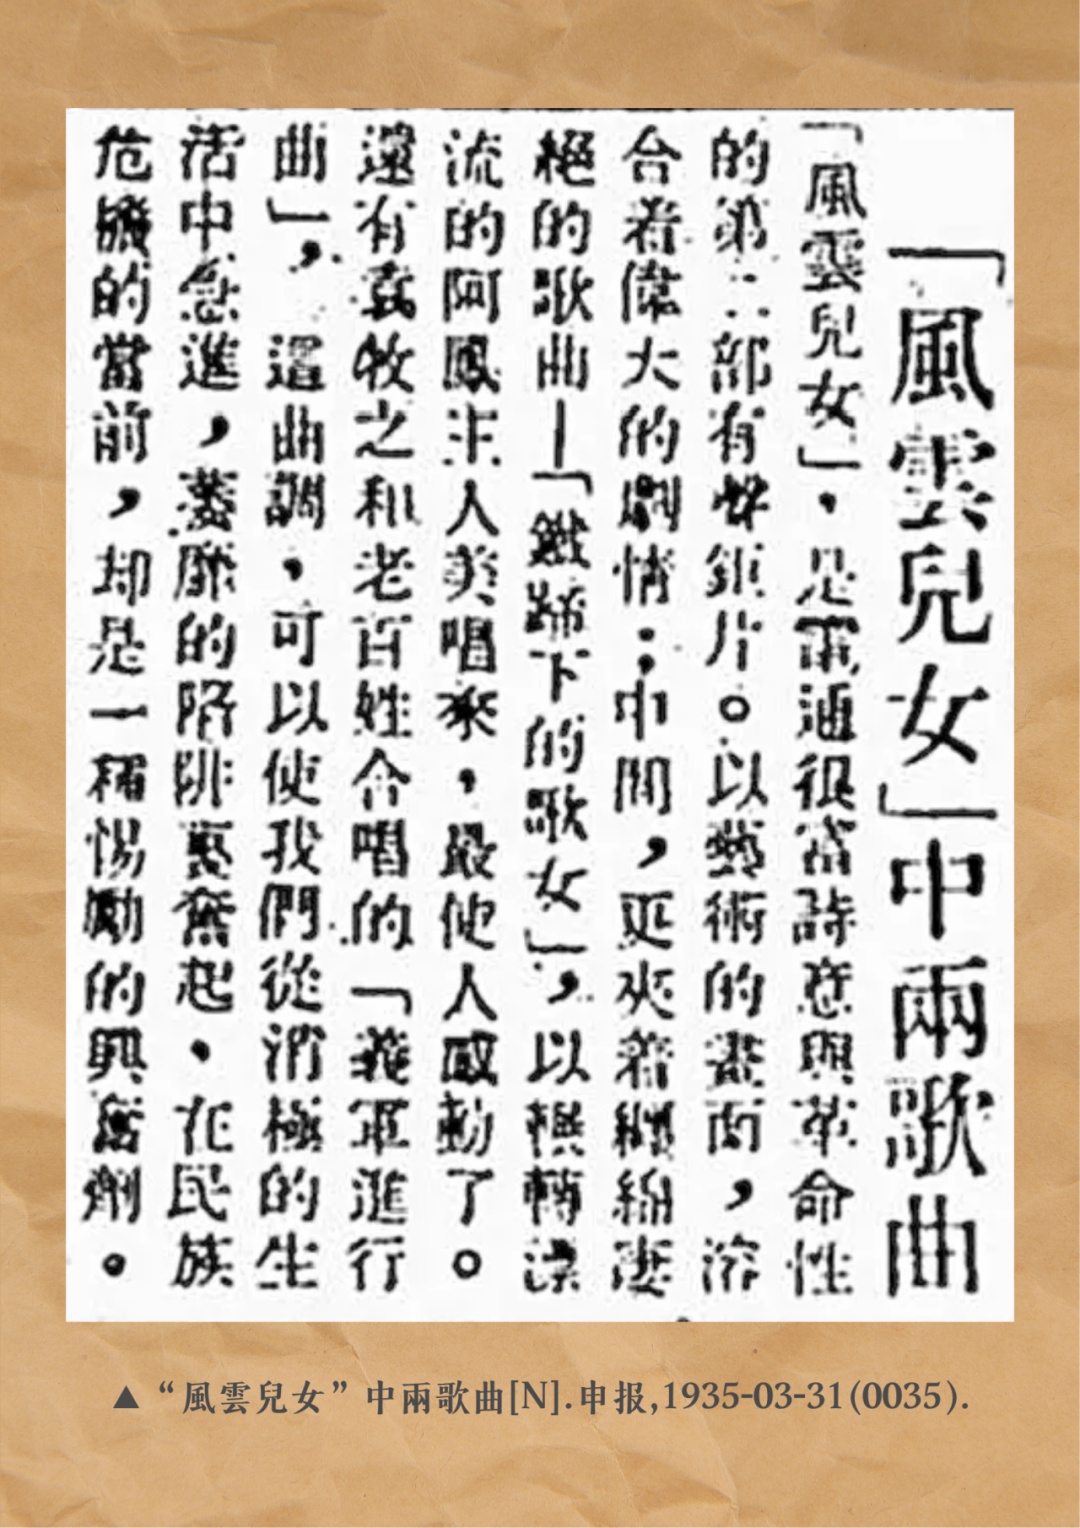 「風雲兒女」中兩歌曲
「風雲兒女」，是電通很富詩意與革命性
的第二部有聲鉅片。以藝術的畫面，溶
合着偉大的劇情；中間，更夾着纏綿淒
絕的歌曲—「鐵蹄下的歌女」，以
流的阿鳳主人美唱來，最使人感動了。
還有袁牧之和老百姓合唱的「義軍進行
曲」，這曲調，可以使我們從消極的生
活中急進，萎靡的陷阱裏奮起，在民族
危機的當前，却是一種惕勵的興奮劑。
▲“風雲兒女”中兩歌曲[N].申报,1935-03-31(0035).